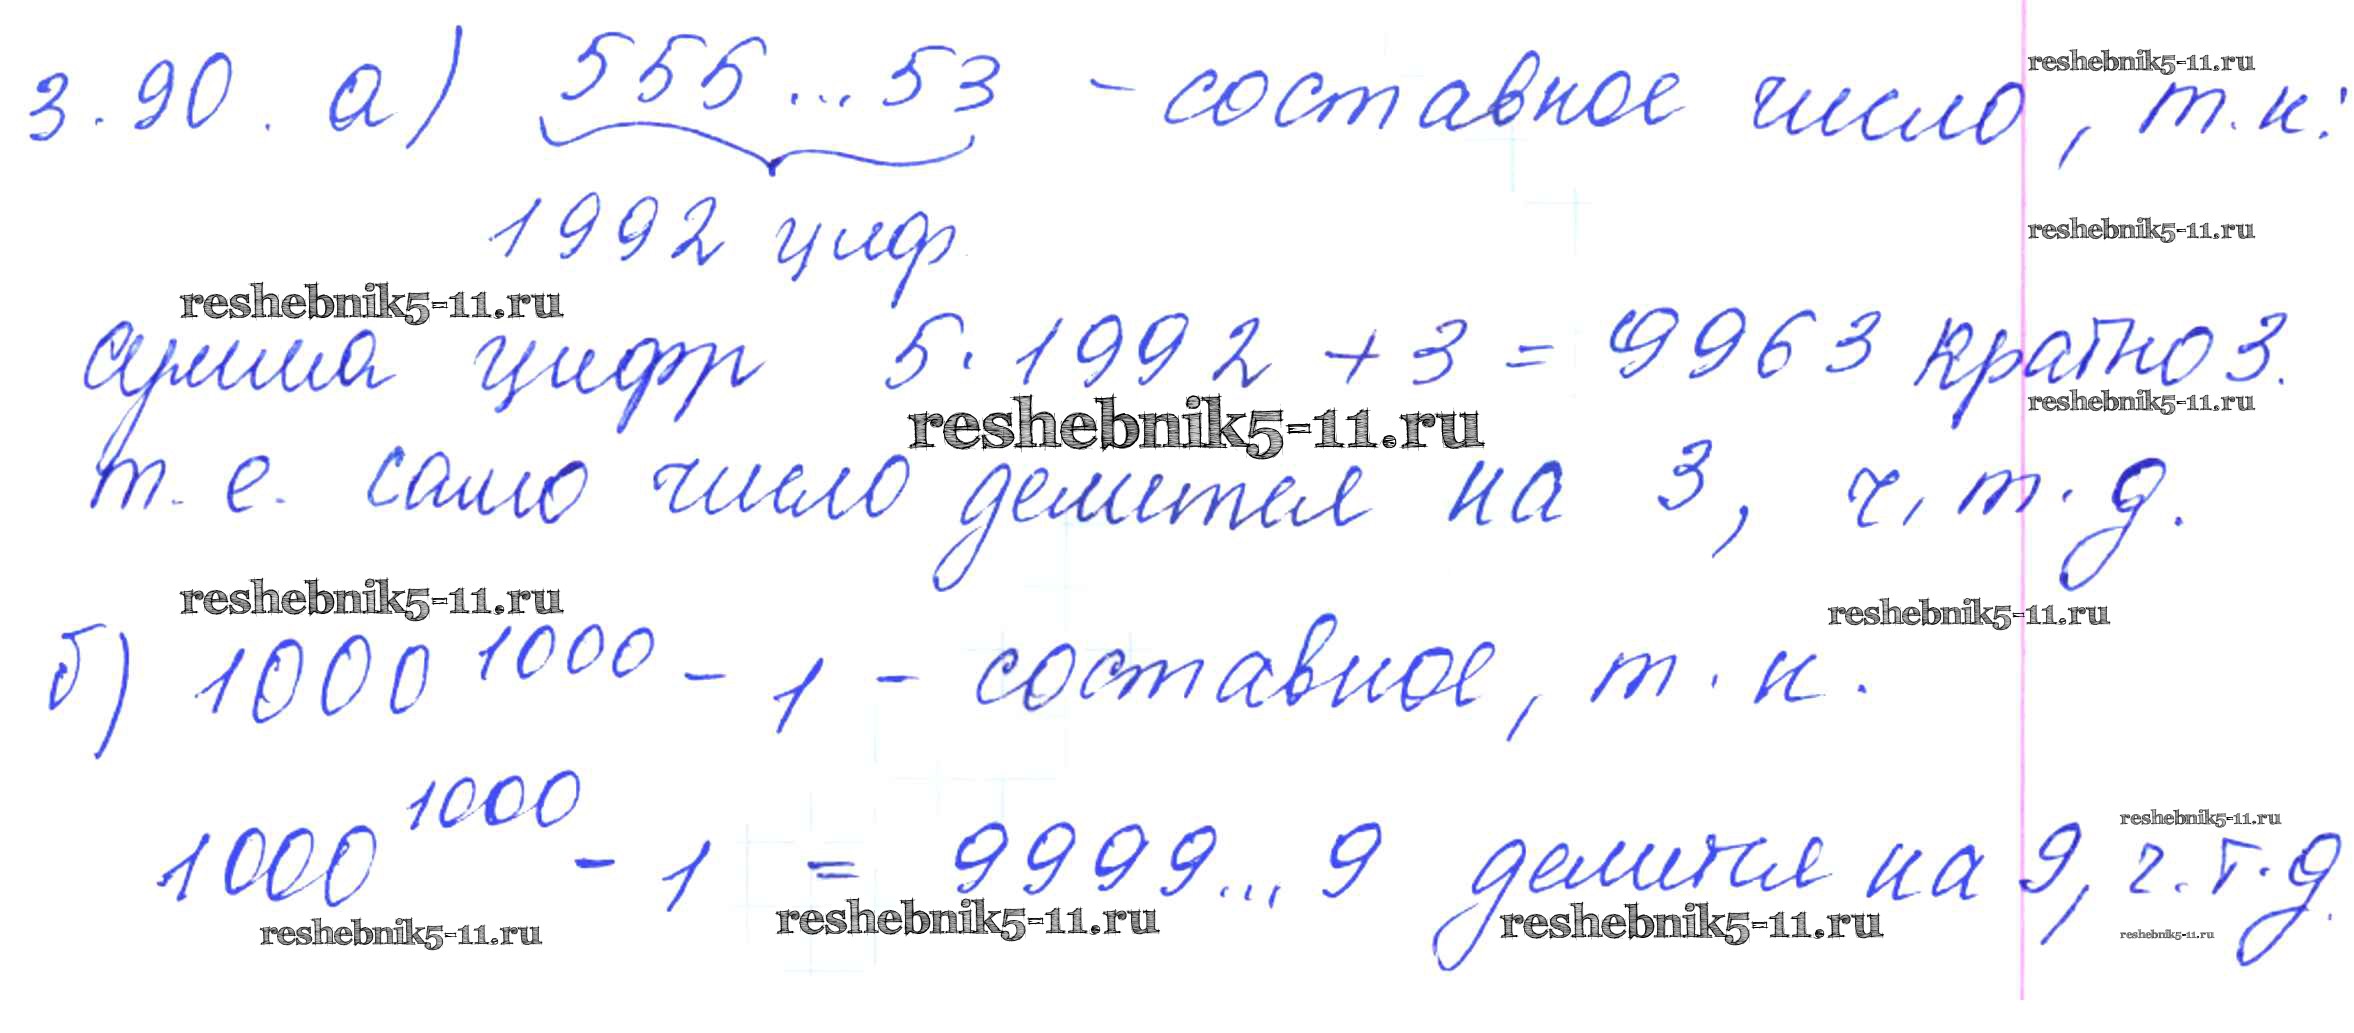 3.90. а) 555...53 - составное число, т.к:
reshebnik5-11.ru
1992 циф
reshebnik5-11.ru
reshebnik5-11.ru
сумма цифр 5·1992 + 3 = 9963 кратно 3.
reshebnik5-11.ru
reshebnik5-11.ru
т.е. само число делится на 3, ч.т.д.
reshebnik5-11.ru
reshebnik5-11.ru
б) 1000^1000 - 1 - составное, т.к.
reshebnik5-11.ru
1000^1000 - 1 = 9999...9 делится на 9, ч.т.д.
reshebnik5-11.ru
reshebnik5-11.ru
reshebnik5-11.ru
reshebnik5-11.ru